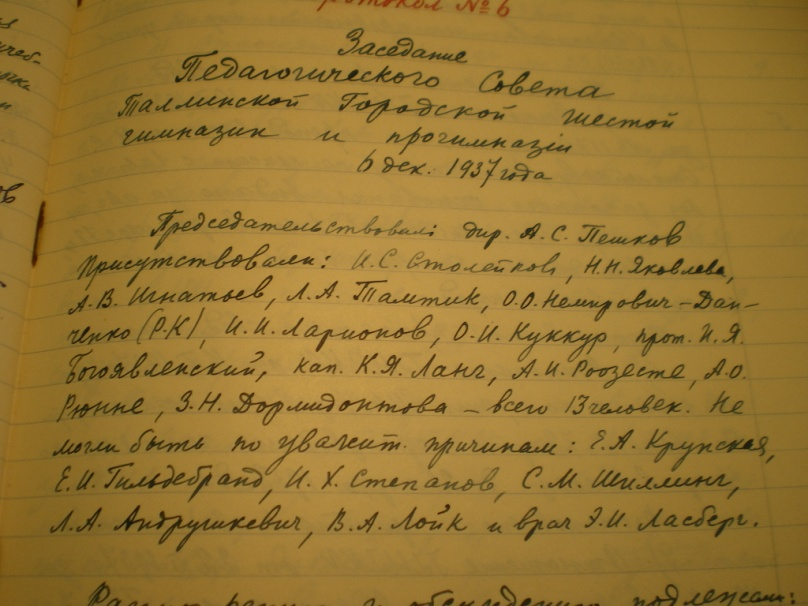 Протокол № 6
Заседание
Педагогического Совета
Таллинской Городской шестой
гимназии и прогимназіи
6 дек. 1937 года
Председательствовал: дир. А.С. Пешков
Присутствовали: И.С. Столейков, Н.Н. Яковлева,
А.В. Игнатьев, Л.А. Тамтик, О.О. Немирович-Дан-
ченко (Р.К), И.И. Ларионов, О.И. Куккур, прот. И.Я.
Богоявленский, кап. К.Я. Ланг, А.И. Роозесте, А.О.
Рюнне, З.Н. Дормидонтова - всего 13 человек. Не
могли быть по уважит. причинам: Е.А. Крупская,
Е.И. Гильдебранд, И.Х. Степанов, С.М. Шиллинг,
Л.А. Андрушкевич, В.А. Лойк и врач Э.И. Ласберг.
обсуждению подлежали: